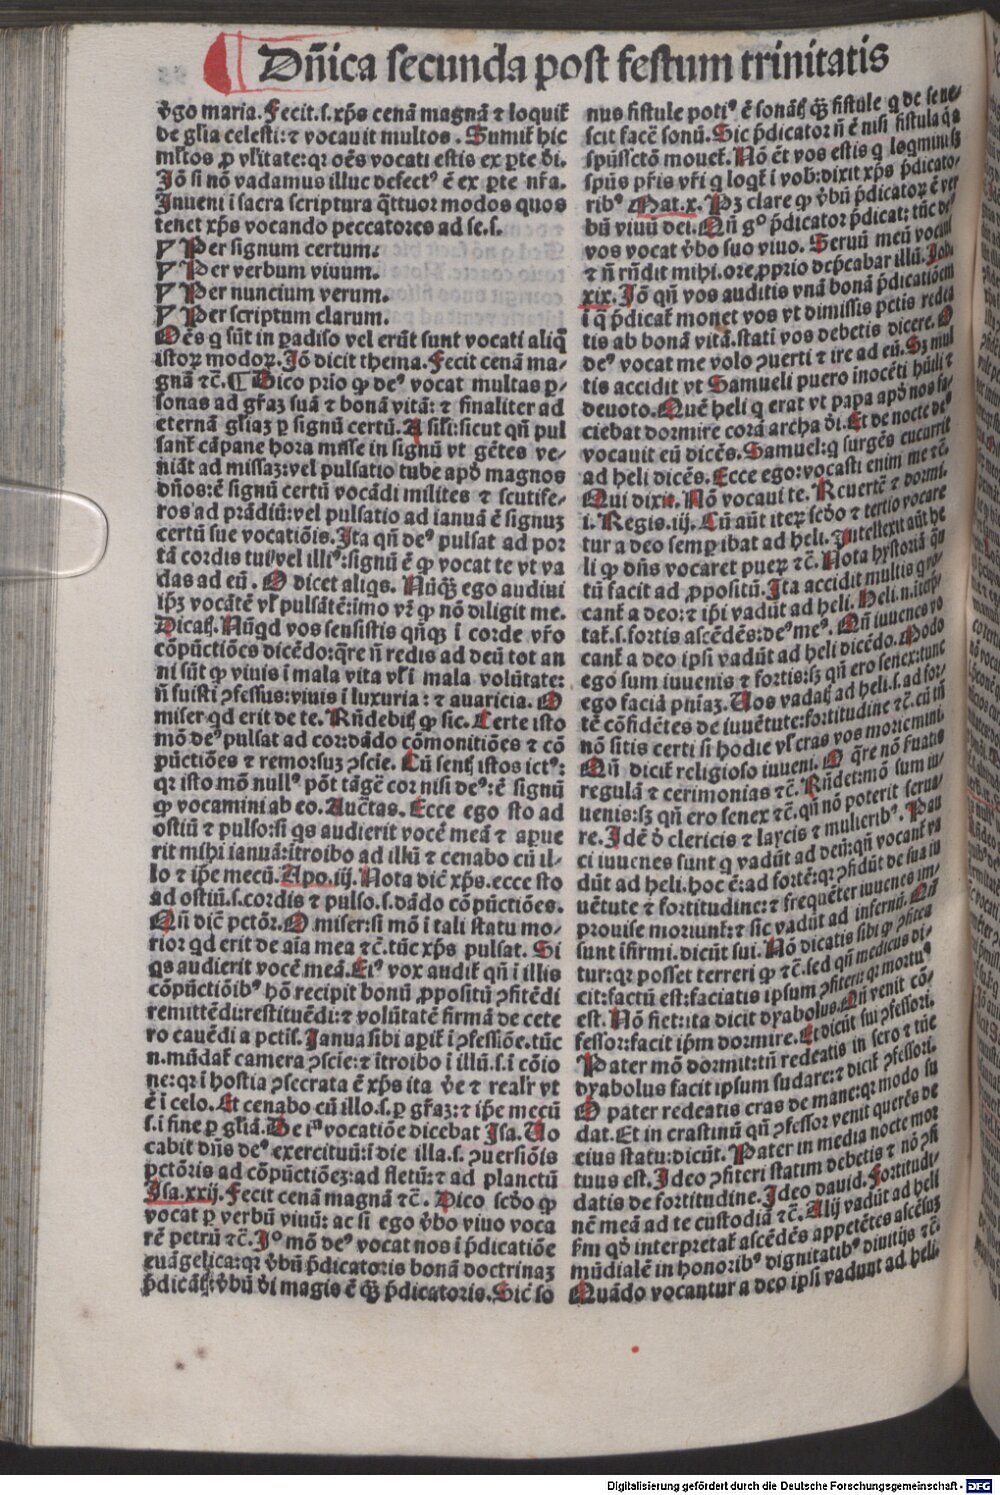 Dñica secunda post festum trinitatis
ꝟgo maria. Fecit.ſ.xp̃s cenã magnã ⁊ loquit̃
de gl̃ia celeſti:⁊ vocauit multos. Sumit̃ hic
ml̃tos ꝓ vl̃itate:qꝛ oẽs vocati eſtis ex ꝑte d̃i.
Jõ ſi nõ vadamus illuc defectꝰ ẽ ex ꝑte nr̃a.
Jnueni ĩ ſacra ſcriptura q̃ttuoꝛ modos quos
tenet xp̃s vocando peccatoꝛes ad ſe.ſ.
Per ſignum certum.
Per verbum viuum.
Per nuncium verum.
Per ſcriptum clarum.
Oẽs q ſũt in ꝑadiſo vel erũt ſunt vocati aliq̃
iſtoꝝ modoꝝ. Jõ dicit thema. Fecit cenã ma⸗
gnã ⁊c̃. ¶ Dico pr̃io ꝙ deꝰ vocat multas ꝑ⸗
ſonas ad gr̃az ſuã ⁊ bonã vitã: ⁊ finaliter ad
eternã gl̃iaz ꝑ ſignũ certũ. A ſil̃i:ſicut qñ pul
ſant̃ cãpane hoꝛa miſſe in ſignũ vt gẽtes ve⸗
niãt ad miſſaz:vel pulſatio tube apð magnos
dños:ẽ ſignũ certũ vocãdi milites ⁊ ſcutife⸗
ros ad pꝛãdiũ:vel pulſatio ad ianuã ẽ ſignuz
certũ ſue vocatiõis. Jta qñ deꝰ pulſat ad poꝛ
tã coꝛdis tui vel illiꝰ:ſignũ ẽ ꝙ vocat te vt va
das ad eũ. O dicet aliqs. Nũq̃ ego audiui
ip̃z vocãtẽ vl̃ pulſãtẽ:imo vr̃ ꝙ nõ diligit me.
Dicat̃. Nũqd vos ſenſiſtis qñqꝫ ĩ coꝛde vr̃o
cõpũctiões dicẽdo:q̃re ñ redis ad deũ tot an
ni ſũt ꝙ viuis ĩ mala vita vl̃ ĩ mala volũtate:
ñ fuiſti ꝯfeſſus:viuis ĩ luxuria: ⁊ auaricia. O
miſer qd erit de te. Rñdebit̃ ꝙ ſic. Certe iſto
mõ deꝰ pulſat ad coꝛ:dãdo cõmonitiões ⁊ cõ
pũctiões ⁊ remoꝛſuz ꝯſcie. Cũ ſent̃ iſtos ictꝰ:
qꝛ iſto mõ nullꝰ põt tãgẽ coꝛ niſi deꝰ:ẽ ſignũ
ꝙ vocamini ab eo. Auc̃tas. Ecce ego ſto ad
oſtiũ ⁊ pulſo:ſi qs audierit vocẽ meã ⁊ aperue
rit mihi ianuã:ĩtroibo ad illũ ⁊ cenabo cũ il⸗
lo ⁊ ip̃e mecũ. Apo.iij. Nota dic̃ xp̃s.ecce ſto
ad oſtiũ.ſ.coꝛdis ⁊ pulſo.ſ.dãdo cõpũctiões.
Qñ dic̃ pctõꝛ. O miſer:ſi mõ ĩ tali ſtatu mo⸗
rioꝛ qd erit de aĩa mea ⁊c̃.tũc xp̃s pulſat. Si
qs audierit vocẽ meã. Eiꝰ vox audit̃ qñ ĩ illis
cõpũctiõibꝰ hõ recipit bonũ ꝓpoſitũ ꝯfitẽdi
remittẽdi:reſtituẽdi:⁊ volũtatẽ firmã de cete
ro cauẽdi a pctis. Janua ſibi aꝑit̃ ĩ ꝯfeſſiõe.tũc
n.mũdat̃ camera ꝯſcie:⁊ ĩtroibo ĩ illũ.ſ.ĩ cõio
ne:qꝛ ĩ hoſtia ꝯſecrata ẽ xp̃s ita v̾e ⁊ realr̃ vt
ẽ ĩ celo. Et cenabo cũ illo.ſ.ꝑ gr̃az:⁊ ip̃e mecũ
ſ.ĩ fine ꝑ gl̃iã. De iſta vocatiõe dicebat Jſa. Vo
cabit dñs deꝰ exercituũ:ĩ die illa.ſ. ꝯuerſiõis
pctõꝛis ad cõpũctiõez:ad fletũ:⁊ ad planctũ
Jſa.xxij. Fecit cenã magnã ⁊c̃. Dico ſcðo ꝙ
vocat ꝑ verbũ viuũ: ac ſi ego ꝟbo viuo voca
rẽ petrũ ⁊c̃. Jſto mõ deꝰ vocat nos ĩ p̃dicatiõe
euãgelica:qꝛ ꝟbũ p̃dicatoꝛis bonã doctrinaz
p̃dicãt̃:ꝟbũ d̃i magis ẽ q̃ꝫ p̃dicatoꝛis. Sic̃ ſo
nus fiſtule potiꝰ ẽ ſonãt̃ q̃ꝫ fiſtule q de ſe ne⸗
ſcit facẽ ſonũ. Sic p̃dicatoꝛ ñ ẽ niſi fiſtula quã
ſpũſſctõ mouet̃. Nõ ẽt vos eſtis q loqmini ſꝫ
ſpũs pr̃is vr̃i q loqt̃ ĩ vob̃:dixit xp̃s p̃dicato⸗
ribꝰ Mat.x. Pꝫ clare ꝙ ꝟbũ p̃dicatoꝝ ẽ ver
bũ viuũ dei. Qñ gº p̃dicatoꝛ p̃dicat: tũc deꝰ
vos vocat ꝟbo ſuo viuo. Seruũ meũ vocaui
⁊ ñ rñdit mihi.oꝛe ꝓpꝛio dep̃cabar illũ. Job
xix. Jõ qñ vos auditis vnã bonã p̃dicatiõem
ĩ q̃ p̃dicat̃ monet vos vt dimiſſis pctis redea
tis ab bonã vitã.ſtati vos debetis dicere. O
deꝰ vocat me volo ꝯuerti ⁊ ire ad eũ. Sꝫ mul
tis accidit vt Samueli puero inocẽti hũili ⁊
deuoto. Quẽ heli q erat vt papa apð nos fa
ciebat doꝛmire coꝛã archa d̃i. Et de nocte deꝰ
vocauit eũ dicẽs. Samuel:q ſurgẽs cucurrit
ad heli dicẽs. Ecce ego:vocaſti enim me ⁊c̃.
Qui dixit. Nõ vocaui te. Reuertẽ ⁊ doꝛmi.
i. Regis.iij. Cũ aũt iteꝝ ſcðo ⁊ tertio vocare
tur a deo ſemꝑ ibat ad heli. Jntellexit aũt he
li ꝙ dñs vocaret pueꝝ ⁊c̃. Nota hyſtoꝛiã q̃n
tũ facit ad ꝓpoſitũ. Jta accidit multis q vo⸗
cant̃ a deo:⁊ ip̃i vadũt ad heli. Heli.n.ĩtꝑp̃⸗
tat̃.ſ.foꝛtis aſcẽdẽs:deꝰ meꝰ. Qñ iuuenes vo
cant̃ a deo ipſi vadũt ad heli dicẽdo. Modo
ego ſum iuuenis ⁊ foꝛtis:ſꝫ qñ ero ſenex:tunc
ego faciã pñiaz. Vos vadat̃ ad heli.ſ.ad foꝛ⸗
tẽ cõfidẽtes de iuuẽtute:foꝛtitudine ⁊c̃.cũ tñ
nõ ſitis certi ſi hodie vl̃ cras vos moꝛiemini
Qñ dicit̃ religioſo iuueni. O q̃re nõ ſuatis
regulã ⁊ cerimonias ⁊c̃. Rñdet:mõ ſum iu⸗
uenis:ſꝫ qñ ero ſenex ⁊c̃.qñ nõ poterit ſerua⸗
re. Jdẽ ð clericis ⁊ laycis ⁊ mulieribꝰ. Pau
ci iuuenes ſunt q vadũt ad deũ:qñ vocant̃ va
dũt ad heli.hoc ẽ:ad foꝛtẽ:qꝛ ꝯfidũt de ſua iu
uẽtute ⁊ foꝛtitudine:⁊ frequẽter iuuenes im⸗
pꝛouiſe moꝛiunt̃:⁊ ſic vadũt ad infernũ. Qñ
ſunt ĩfirmi.dicũt ſui. Nõ dicatis ſibi ꝙ ꝯfitea
tur:qꝛ poſſet terreri ꝙ ⁊c̃.ſed qñ medicus di⸗
cit:factũ eſt:faciatis ipſum ꝯfiteri:qꝛ moꝛtuꝰ
eſt. Nõ fiet:ita dicit dyabolus. Qñ venit cõ⸗
feſſoꝛ:facit ip̃m doꝛmire. Et dicũt ſui ꝯfeſſoꝛi.
Pater mõ doꝛmit:tñ redeatis in ſero ⁊ tũc
dyabolus facit ipſum ſudare:⁊ dicit̃ ꝯfeſſoꝛi.
O pater redeatis cras de mane:qꝛ modo ſu
dat. Et in craſtinũ qñ ꝯfeſſoꝛ venit querẽs de
eius ſtatu:dicũt. Pater in media nocte moꝛ
tuus eſt. Jdeo ꝯfiteri ſtatim debetis ⁊ nõ ꝯfi
datis de foꝛtitudine. Jdeo dauid. Foꝛtitudi⸗
nẽ meã ad te cuſtodiã ⁊c̃. Alij vadũt ad heli
ſm qð interpretat̃ aſcẽdẽs appetẽtes aſcẽſuz
mũdialẽ in honoꝛibꝰ dignitatibꝰ diuitijs ⁊c̃.
Quãdo vocantur a deo ipſi vadunt ad heli.
Digitalisierung gefördert durch die Deutsche Forschungsgemeinschaft - DFG